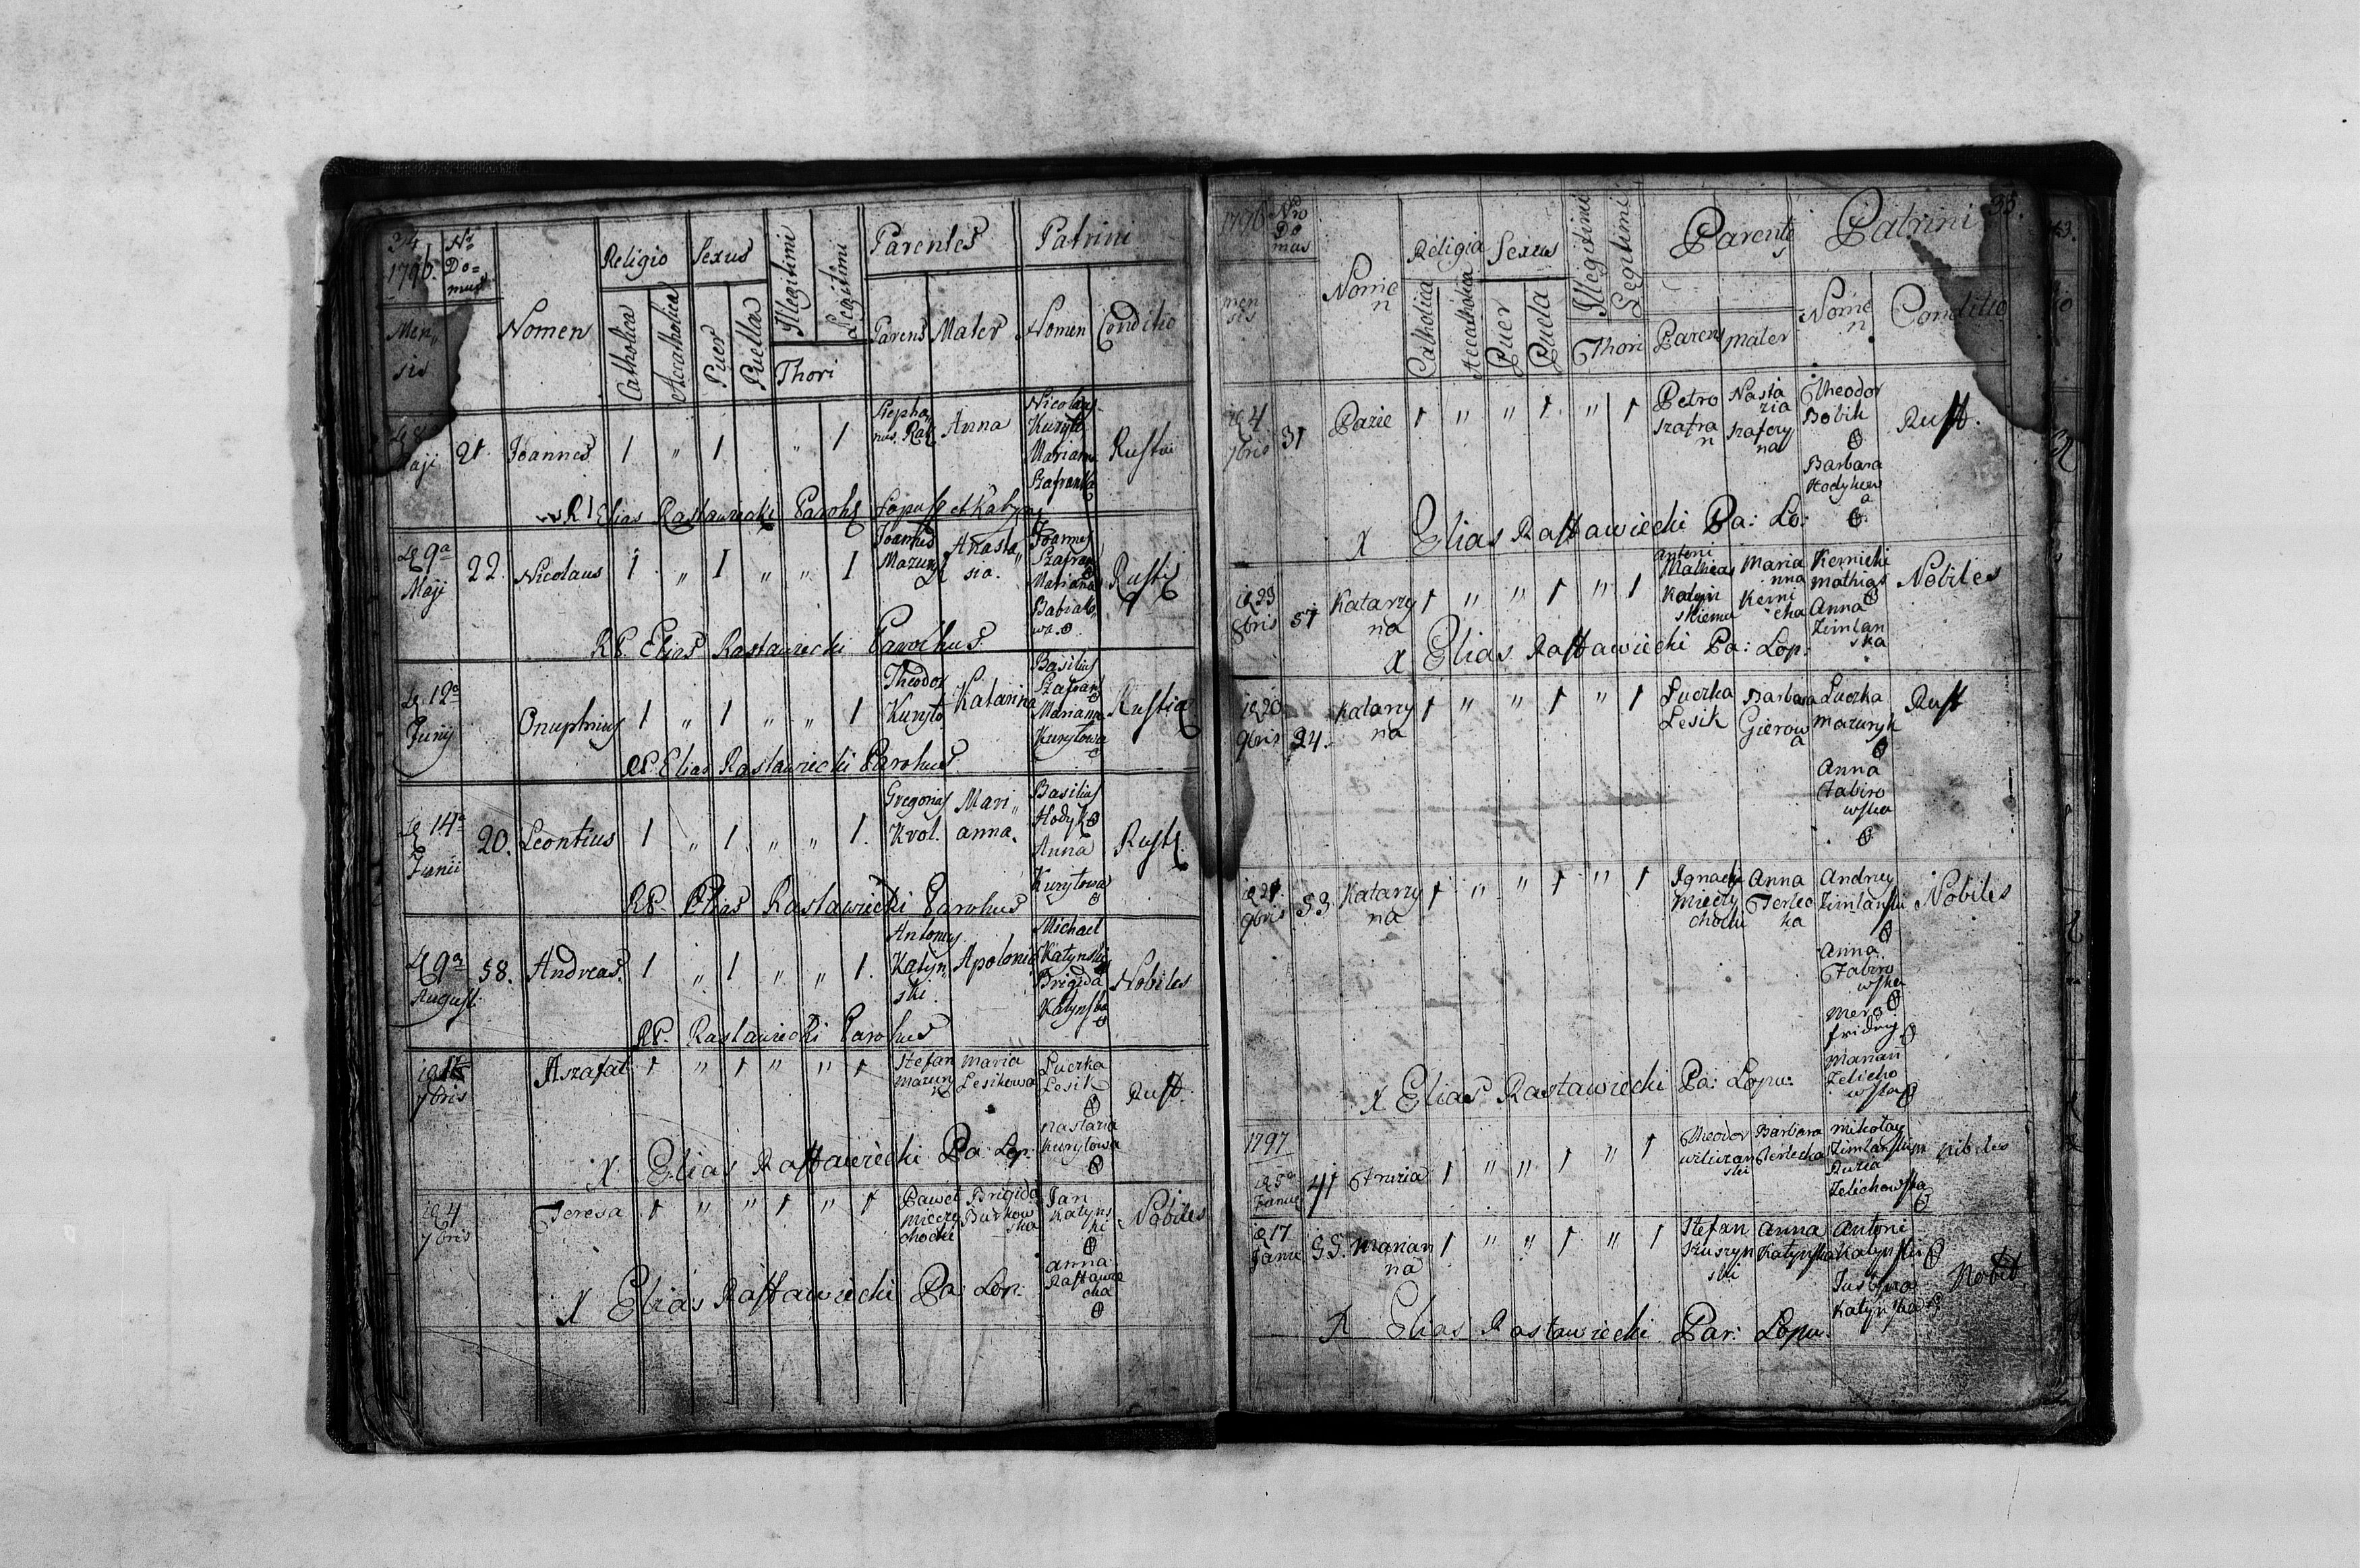 34
1796. Nro Do= mus
Men„ sis
Nomen
Religio
Catholica Accatholica
Sexus
Puer Puella
Illegitimi Legitimi
Thori
Parentes
Parens Mater
Patrini
Nomen Conditio
Maji 21. Joannes 1 „ 1 „ 1 Stepha nus Rak Anna Nicolaus Kuryło Marianna Szafranka
Elias Rastawiecki Paroh
D 9a Maji 22. Nicolaus 1 „ 1 „ „ 1 Joannes Mazury Anasta„ sia. Joannes Szafran Marianna Babiako„ wa
RP. Elias Rastawiecki Parochus
D 12a Junij Onuphrius 1 „ 1 „ „ 1 Theodor Kuryło Katarina Basilius Szafran Marianna Kurytowa
RP. Elias Rastawiecki Parohus
D 14a Junii 20. Leontius 1 „ 1 „ „ 1. Gregorius Krol. Mari„ anna. Basilius Hodyk Anna Kurytowa
RP. Elias Rastawiecki Parohus
D 9a August: 58. Andreas. 1 „ 1 „ „ 1. Antoney Katyn„ ski. Apolonia Michael Katynski Brigida Katynska Nobiles
RP. Rastawiecki Parohus
7bris Aszafat 1 „ 1 „ „ 1 Stefan Mazury Maria Lesikowa Luczka Lesik Nastazia Kurytowa Rust.
X Elias Rastawiecki Pa: Lop:
4 7bris Teresa 1 „ „ 1 „ 1 Paweł Mieczy chocki Brigida Burkow ska Jan Katyns ki Anna Rastawie cka Nobiles
X Elias Rastawiecki Pa: Lop:
1796 Nro Do mus
35.
men sis
Nome n
Religia
Catholica Accatholica
Sexus
Puer Puela
Illegitimi Legitimi
Thori
Parente
Parens mater
Patrini
Nome n Conditio
4 7bris 31 Pazie 1 „ „ 1 „ 1 Petro szafra n Nasta zia szafery na Theodor Bobik Barbara Hodykow a Rust.
X Elias Rastawiecki Pa: Lo:
23 8bris 57 Katarzy na 1 „ „ 1 „ 1 Antoni Mathias Maria nna Kerni cka Kernicki Mathias Anna Zimlan ska Nobiles
X Elias Rastawiecki Pa: Lop:
20 9bris 24. Katarzy na 1 „ „ 1 „ 1 Luczka Lesik Barbara Gierow a Luczka Mazuryk Anna Tabiro wska Rust
21 9bris 53 Katarzy na 1 „ „ 1 „ 1 Ignacy Mieczy chocki Anna Terlec ka Andrey Zimlanski Anna Tabiro wska Marian Zelicho wska Nobiles
X Elias Rastawiecki Pa: Lopu:
1797
5a Janue 41 Fruzia 1 „ „ 1 „ 1 Theodor Barbara Terlecka Mikołay Zimlanski Ruzia Zelichowska
17 Janu Marian na 1 „ „ 1 „ 1 Stefan szuszyn ski Anna Katynska Antoni Katynski Justyna Katynska Nobil
X Elias Rastawiecki Par: Lopu